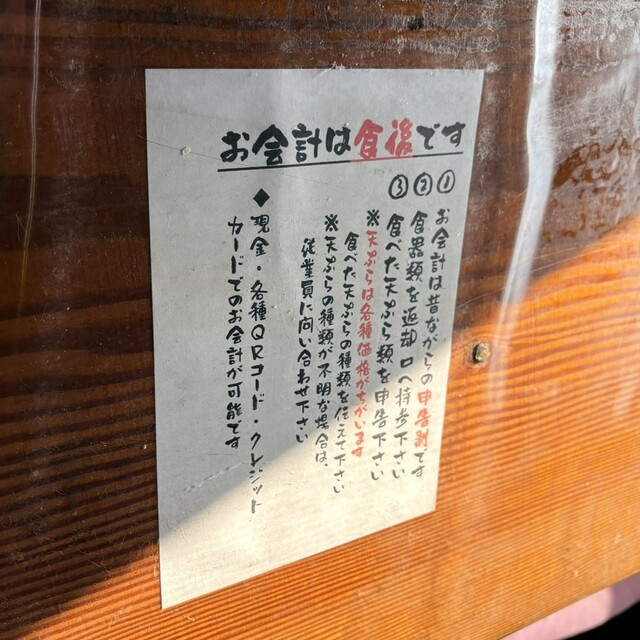 お会計は食後です
①お会計は昔ながらの申告制です
②食器類を返却口へ持参下さい
③食べた天ぷら類を申告下さい
※天ぷらは各種価格がちがいます
食べた天ぷらの種類を伝えて下さい
※天ぷらの種類が不明な場合は、
従業員に問い合わせ下さい
◆現金・各種QRコード・クレジット
カードでのお会計が可能です